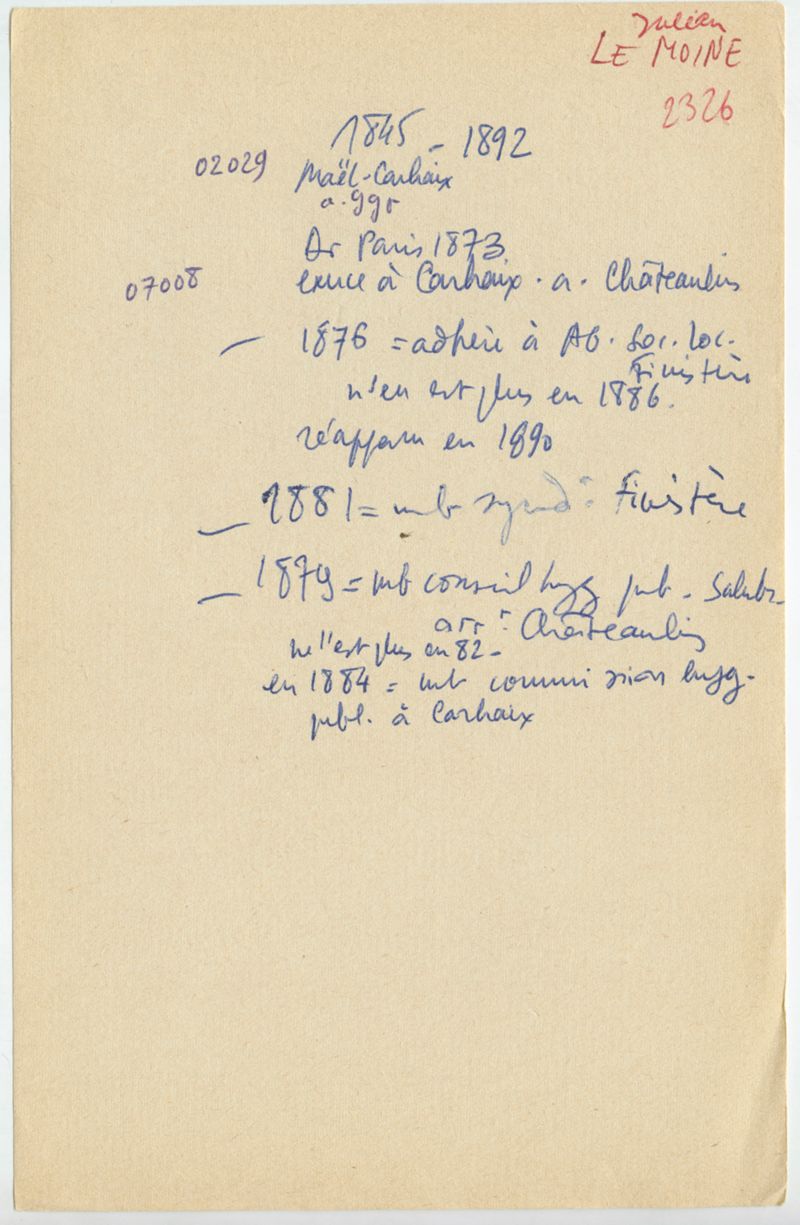 Julien
LE MOINE
2326
1845 - 1892
02029 Maël-Carhaix
Dr Paris 1873
07008 exerce à Carhaix . a . Châteaulin
— 1876 = adhère à AG. Soc. loc.
Finistère
n'en est plus en 1886.
réapparu en 1890
— 1881 = mb synd^t Finistère
— 1879 = mb conseil hyg pub . Salubr.
arr^t Châteaulin
ne l'est plus en 82 -
en 1884 = mb commission hyg.
publ. à Carhaix